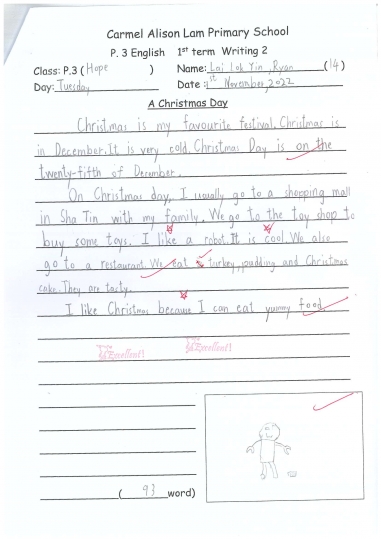 Carmel Alison Lam Primary School
P. 3 English 1st term Writing 2
Class: P.3 ( Hope ) Name: Lai Lok Yin , Ryan (14)
Day: Tuesday Date : 1st November, 2022
A Christmas Day
Christmas is my favourite festival. Christmas is
in December. It is very cold. Christmas Day is on the
twenty-fifth of December.
On Christmas day, I usually go to a shopping mall
in Sha Tin with my family. We go to the toy shop to
buy some toys. I like a robot. It is cool. We also
go to a restaurant. We eat turkey, pudding and Christmas
cake. They are tasty.
I like Christmas because I can eat yummy food.
Excellent! Excellent!
( 93 word)